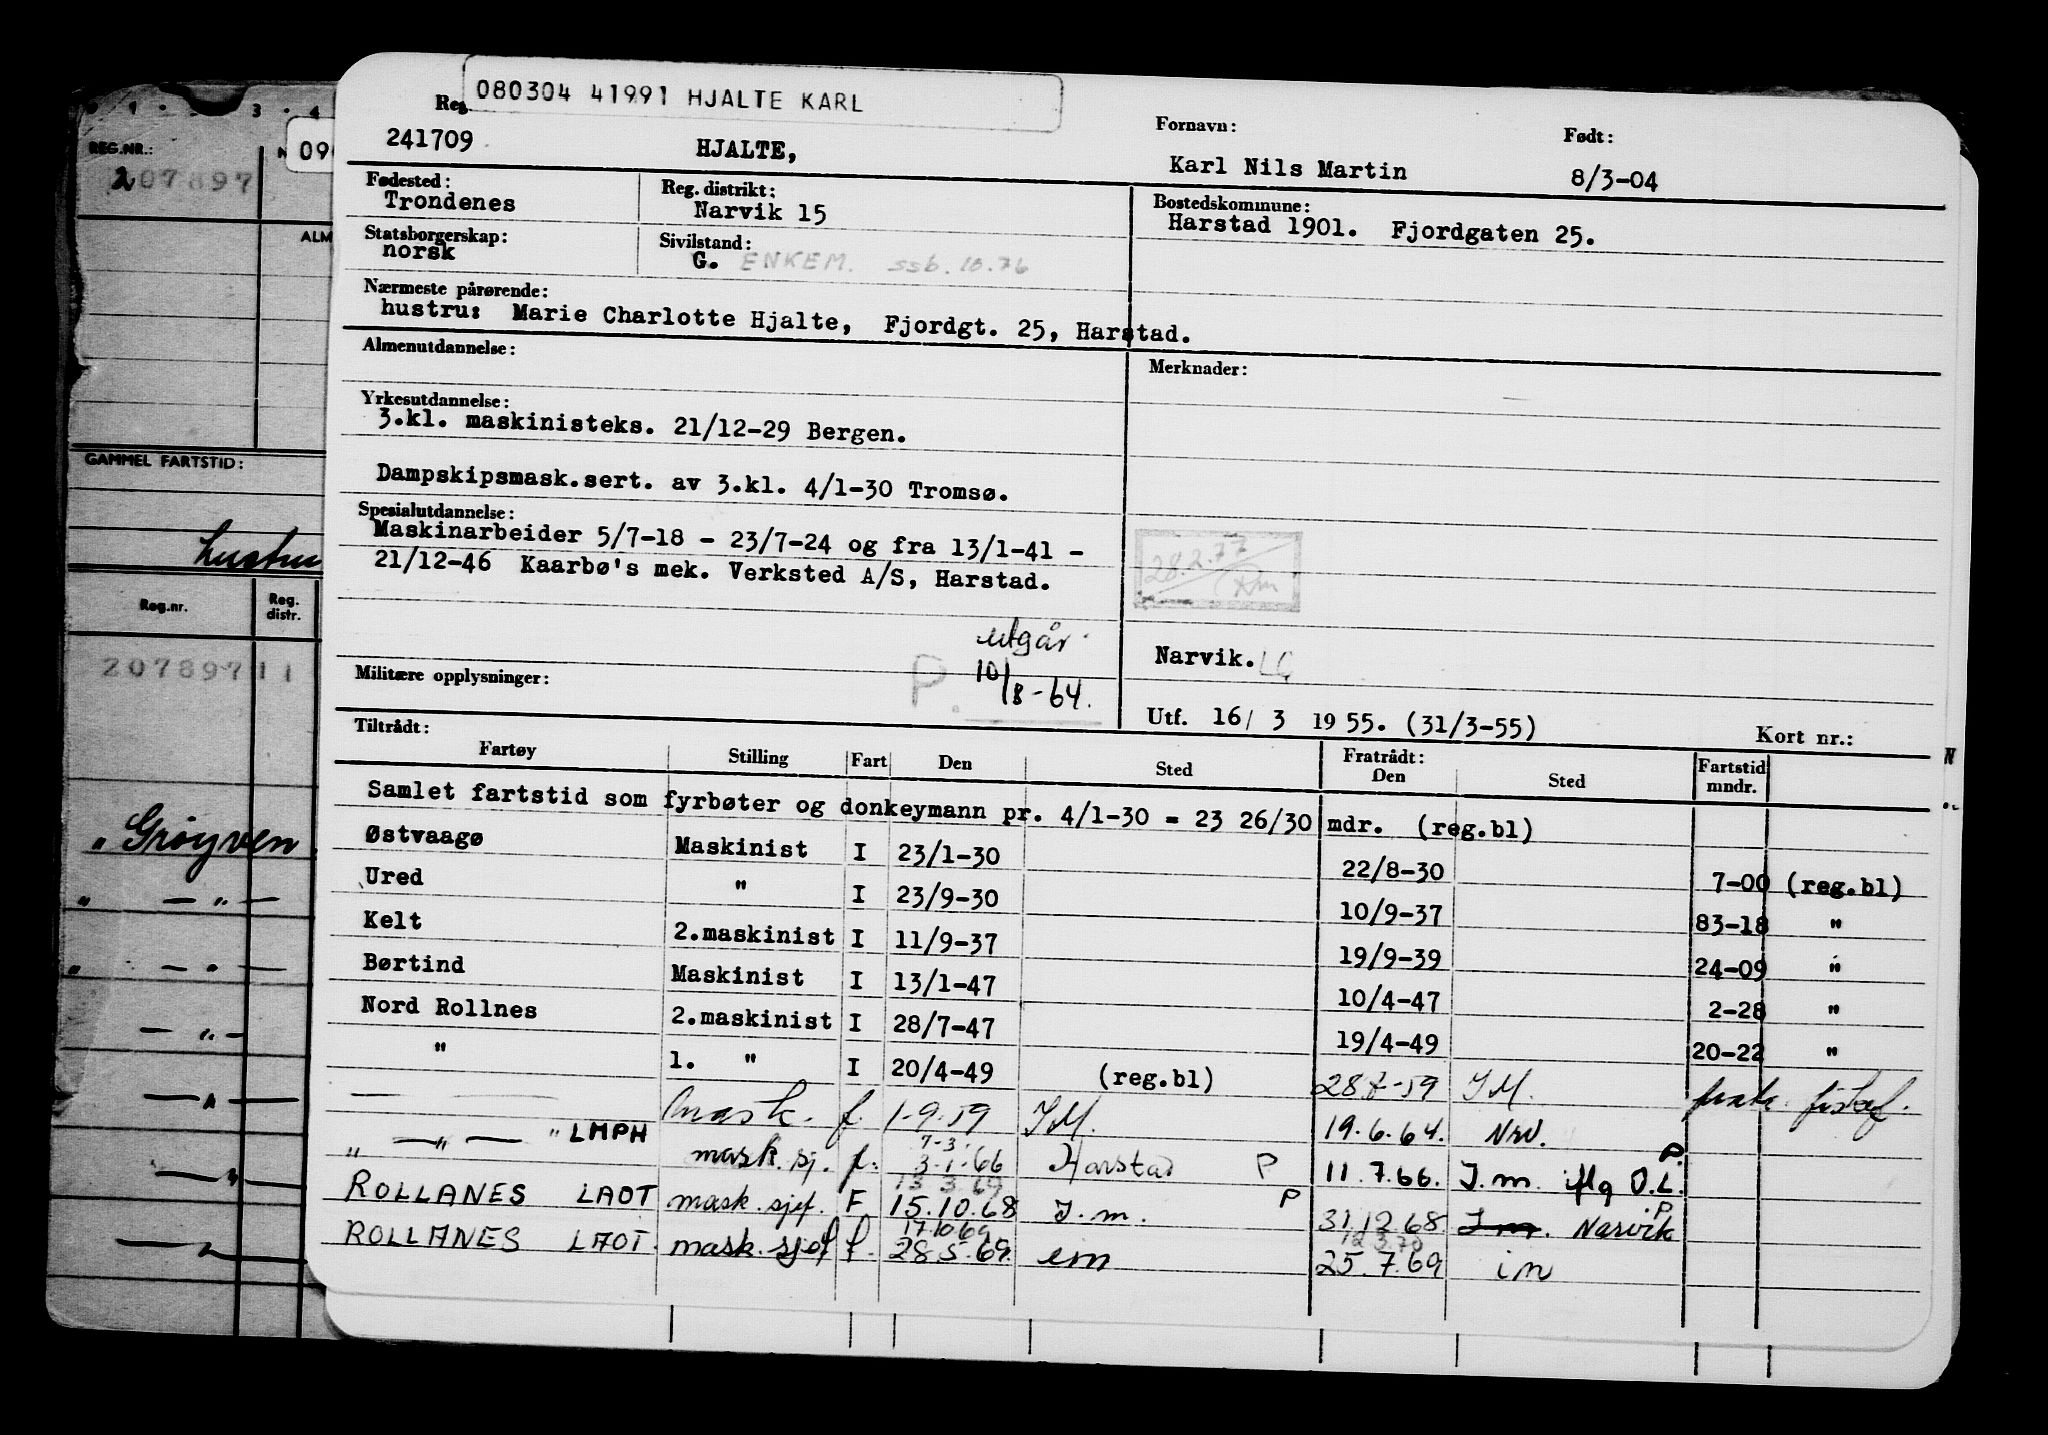 080304 41991 HJALTE KARL
Reg
241709
HJALTE,
Fornavn:
Karl Nils Martin
Født:
8/3-04
Fødested:
Trondenes
Reg. distrikt:
Narvik 15
Bostedskommune:
Harstad 1901. Fjordgaten 25.
Statsborgerskap:
norsk
Sivilstand:
G. ENKEM. ssb. 10.76
Nærmeste pårørende:
hustru: Marie Charlotte Hjalte, Fjordgt. 25, Harstad.
Almenutdannelse:
Merknader:
Yrkesutdannelse:
3.kl. maskinisteks. 21/12-29 Bergen.
Dampskipsmask.sert. av 3.kl. 4/1-30 Tromsø.
Spesialutdannelse:
Maskinarbeider 5/7-18 - 23/7-24 og fra 13/1-41 -
21/12-46 Kaarbø's mek. Verksted A/S, Harstad.
28.2.77
utgår
P. 10/8-64.
Narvik.
Militære opplysninger:
Utf. 16/ 3 19 55. (31/3-55)
Kort nr.:
Tiltrådt:
Fartøy Stilling Fart Den Sted Fratrådt: Den Sted Fartstid mndr.
Samlet fartstid som fyrbøter og donkeymann pr. 4/1-30 = 23 26/30 mdr. (reg.bl)
Østvaagø Maskinist I 23/1-30 22/8-30 7-00 (reg.bl)
Ured " I 23/9-30 10/9-37 83-18 "
Kelt 2.maskinist I 11/9-37 19/9-39 24-09 "
Børtind Maskinist I 13/1-47 10/4-47 2-28 "
Nord Rollnes 2.maskinist I 28/7-47 19/4-49 20-22 "
" 1. " I 20/4-49 (reg.bl) 28.7-59 I M.
mask. f. 1-9.59 I M. 19.6.64. Nrv.
" — " — " LMPH mask. sj. f. 7-3. 3-1-66 Harstad P 11.7.66. I.m. iflg O.L. P.
13 3.69
ROLLANES LAOT mask. sjef. F 15.10.68 I.m. P 31.12.68. I.m. Narvik P
17.10.69 12.3.70
ROLLANES LAOT. mask. sjef f. 28.5.69. im 25.7.69 im
REG.NR.:
207897
090
ALM
GAMMEL FARTSTID:
hustru
Reg.nr. Reg. distr.
207897 11
" Grøyven
3 4